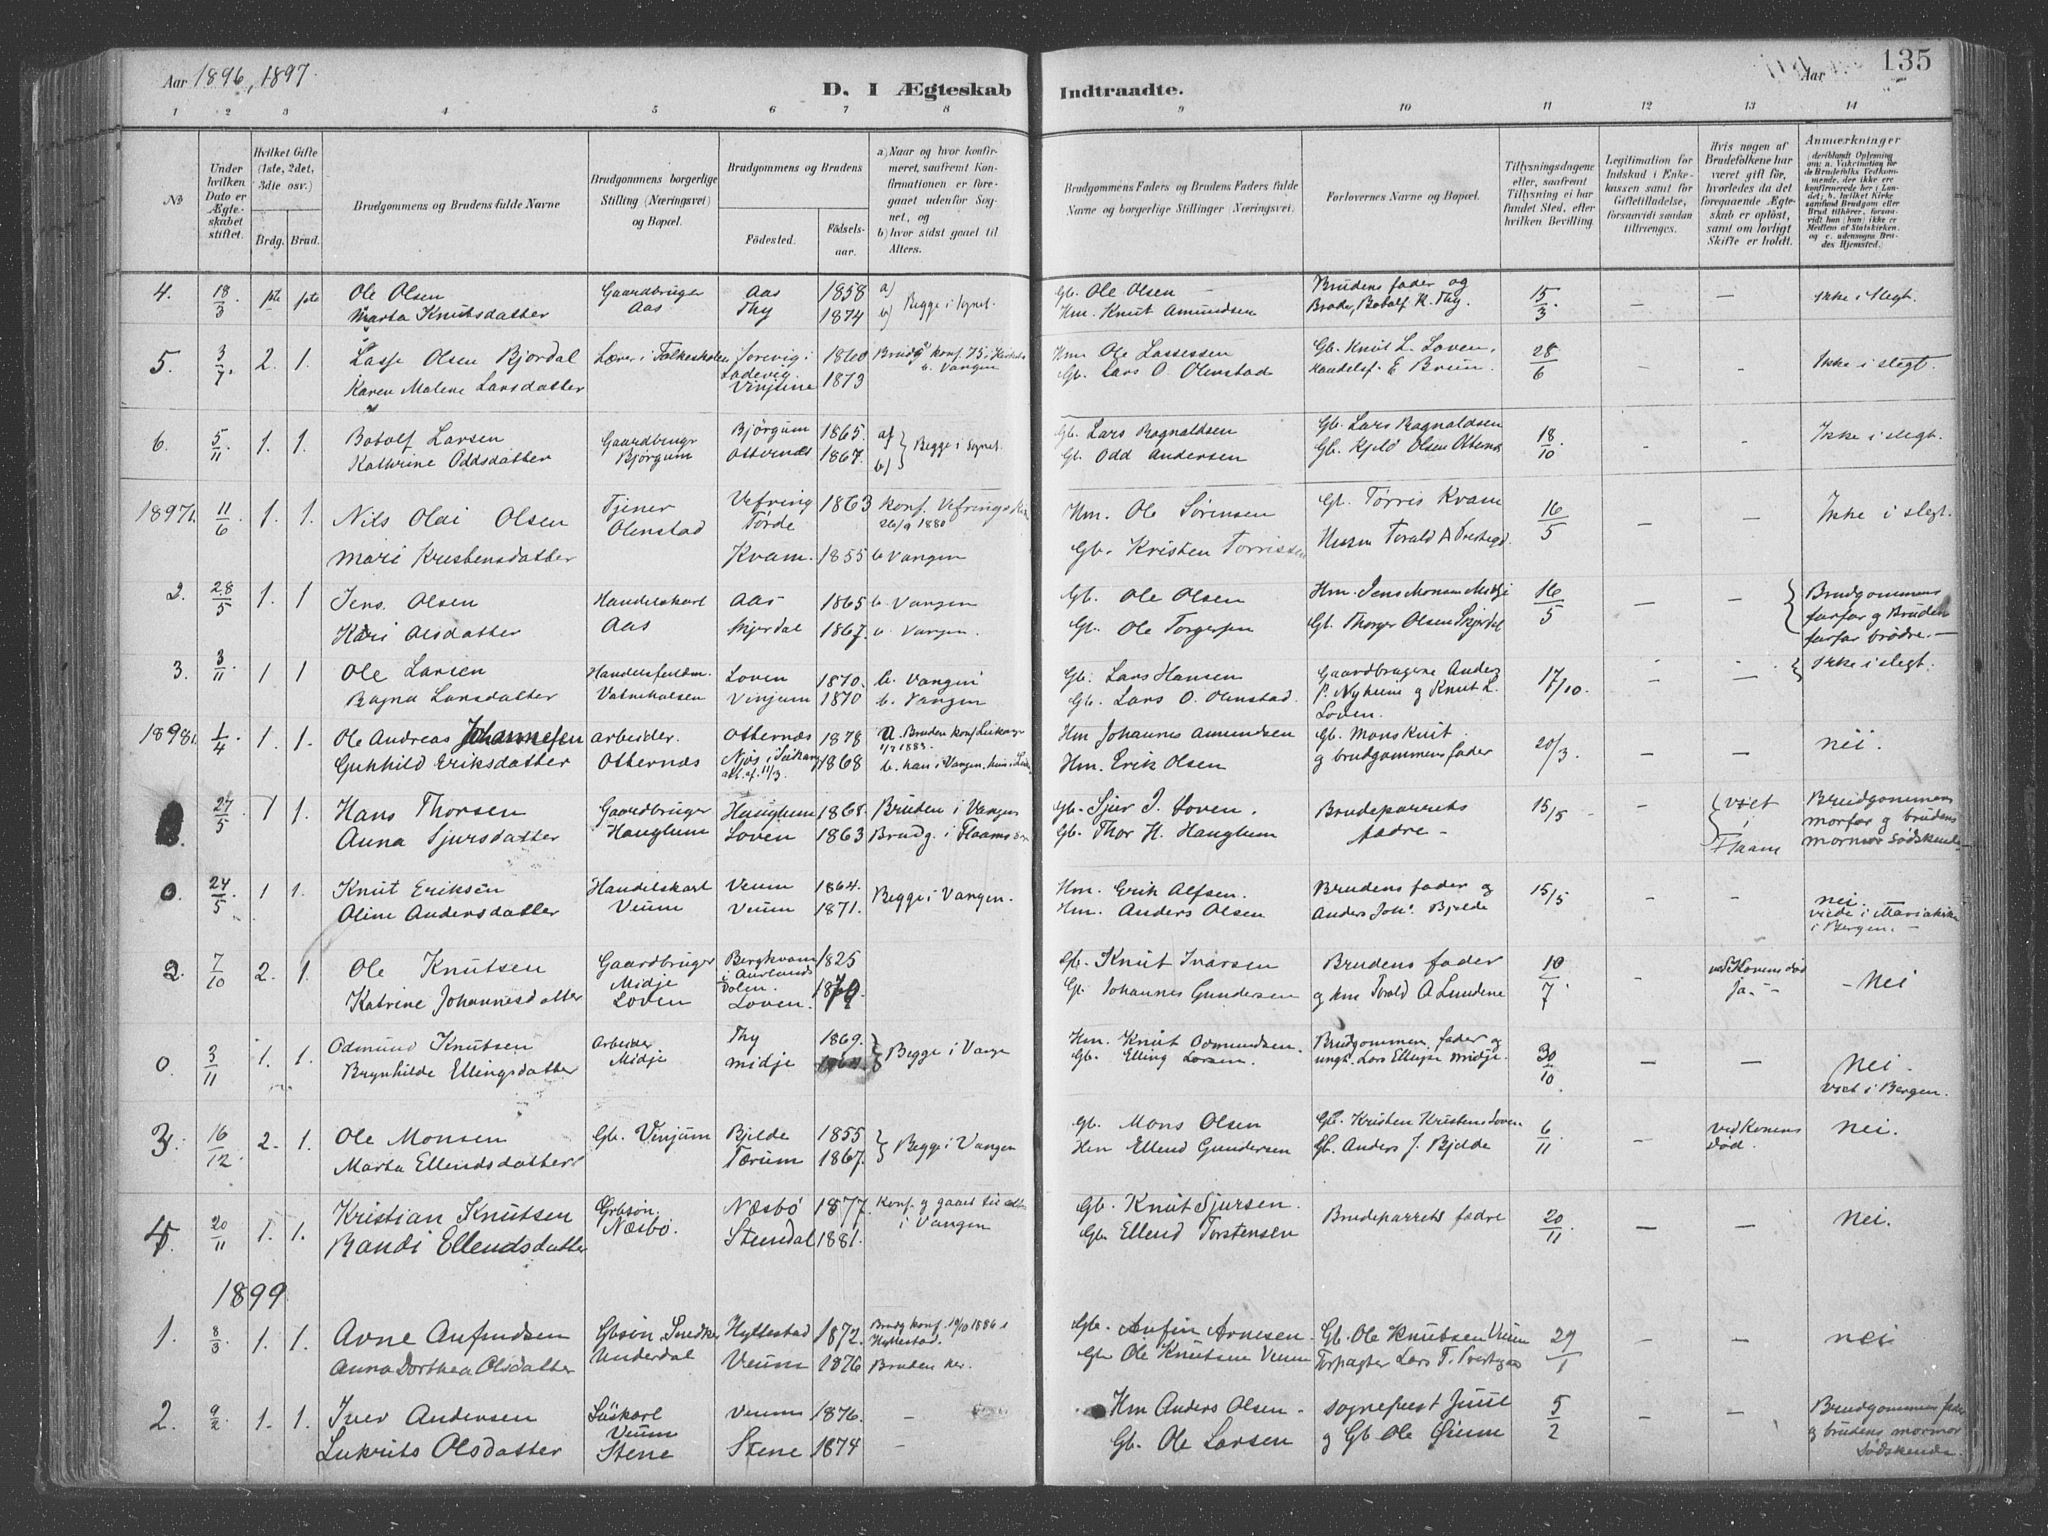 Aar 1896, 1897.
D. I Ægteskab Indtraadte.
Aar 135
1 2 3 4 5 6 7 8 9 10 11 12 13 14
№
Under hvilken Dato er Ægteskabet stiftet.
Hvilket Gifte (1ste, 2det, 3die osv.)
Brdg. Brud.
Brudgommens og Brudens fulde Navne
Brudgommens borgerlige Stilling (Næringsvei) og Bopæl.
Brudgommens og Brudens
Fødested.
Fødselsaar.
a) Naar og hvor konfirmeret, saafremt Konfirmationen er foregaaet udenfor Sognet, og
b) hvor sidst gaaet til Alters.
Brudgommens Faders og Brudens Faders fulde Navne og borgerlige Stillinger (Næringsvei).
Forlovernes Navne og Bopæl.
Tillysningsdagene eller, saafremt Tillysning ei har fundet Sted, efter hvilken Bevilling.
Legitimation for Indskud i Enkekassen samt for Giftetilladelse, forsaavidt saadan tiltrænges.
Hvis nogen af Brudefolkene har været gift før, hvorledes da det foregaaende Ægteskab er opløst, samt om lovligt Skifte er holdt.
Anmærkninger
(deriblandt Oplysning om: a. Vakcination for de Brudefolks Vedkommende, der ikke ere konfirmerede her i Landet; b. hvilket Kirkesamfund Brudgom eller Brud tilhører, forsaavidt han (hun) ikke er Medlem af Statskirken, og c. udensogns Brudes Hjemsted.)
4. 18/3 1ste 1ste Ole Olsen Gaardbruger Aas 1858 a) Begge i Sognet. Gb. Ole Olsen Brudens fader og 15/3 – – Ikke i slegt.
Marta Knutsdatter Aas Thy 1874 b) Hm. Knut Amundsen Broder, Botolf K. Thy.
5. 3/7. 2. 1. Lasse Olsen Bjordal Lærer i Folkeskolen 1860 Hm. Ole Lassessen Gb. Knut L. Loven. 28/6 – – Ikke i slegt.
Karen Malene Larsdatter Vinjune 1873 b. Vangen Gb. Lars O. Olenstad Handelsf. E Brun.
6. 5/11 1. 1. Botolf Larsen Gaardbrugr Bjørgum 1865. a) Begge i Sognet. Gb. Lars Ragnaldsen Gb. Lars Ragnaldsen 18/10 – – Ikke i slegt.
Kathrine Oddsdatter Bjørgum Otternæs 1867. b) Gb. Odd Andersen Gb. Kjeld Olsen Otternes
1897 1. 11/6 1. 1. Nils Olai Olsen Tjener Vefring 1863 konf. Vefrings Hm. Ole Sørensen Gb. Tørris Kvam 16/5 – – Ikke i slegt.
Olenstad Førde 26/9 1880
Mari Kristensdatter Kvam. 1855 b. Vangen Gb. Kristen Torrissen Husm Torald A
2. 28/5 1. 1 Jens Olsen Handelskarl Aas 1865 b. Vangen Gb. Ole Olsen Hm. Jens Monsen 16/5 – – Brudgommens
Kari Olsdatter Aas Skjerdal 1867. b. Vangen. Gb. Ole Torgersen Gb. Thorger Olsen Skjerdal farfar og Brudens
farfar brødre. –
3. 3/11 1 1 Ole Larsen Loven 1870. b. Vangen Gb. Lars Hansen Gaardbrugerne Anders 17/10. – – Ikke i slegt.
Ragna Larsdatter Vatneholsen Vinjum 1870 b. Vangen Gb. Lars O. Olenstad P. Nyheim og Knut L.
Loven.
1898 1. 1/4 1. 1. Ole Andreas Johannessen arbeider. Otternæs 1878 a. Bruden konf. Leikanger Hm Johannes Amundsen Gb. Mons Knut 20/3 – – nei.
Gunhild Eriksdatter Otternæs Njøs i Leikang 1868 b. han i Vangen, Hm. Erik Olsen og brudgommens fader
27/5 1 1. Hans Thorsen Gaardbruger Hauglum 1868. Bruden i Vangen Gb. Sjur J. Loven. Brudeparrets 15/5 – viet Brudgommens
Anna Sjursdatter Hauglum Loven 1863 Brudg. i Flaam Gb. Thor H. Hauglum fædre – i morfar og brudens
Flaam mormor Sødskende
0 24/5 1 1. Knut Eriksen Handelskarl Veum 1864. Begge i Vangen. Hm. Erik Alfsen. Brudens fader og 15/5 – – nei.
Oline Andersdatter Veum Veum 1871. Hm. Anders Olsen Anders Joh. Bjelde viede i Mariakirke
i Bergen. –
2. 7/10 2. 1. Ole Knutsen Gaardbruger Bergkvam 1825 Gb. Knut Ivarsen Brudens fader 10/7 – ved Konens død – Nei
Midje i Aurlands
dalen.
Katrine Johannesdatter Loven Loven. Gb. Johannes Gundersen og hm Torald A Lundene Ja. –
0. 3/11 1. 1. Odmund Knutsen Arbeider Thy 1869. Begge i Vangen Hm. Knut Odmundsen. Brudgommens fader og 30/10 – – nei.
Brynhilde Ellingsdatter Midje midje Gb. Elling Larsen. ungk. Lars Ellingsen midje. viet i Bergen.
3. 16/12 2. 1. Ole Monsen Gb. Vinjum Bjelde 1855 Begge i Vangen Gb. Mons Olsen Gb. Kristen Kristens Loven 6/11 – ved Konens nei.
Marta Ellendsdatter Tærum 1867. Hm Ellend Gundersen Gb. Anders J. Bjelde død.
4. 20/11 1. 1. Kristian Knutsen Gbsøn. Næsbø 1877. Konf. og gaaet til alters Gb. Knut Sjursen. Brudeparrets fædre 20/11. – – nei.
Randi Ellendsdatter Næsbø. Stundal 1881. i Vangen Gb. Ellend Torstensen
1899
1. 8/3 1. 1. Arne Anfindsen Gbsøn Snedker Hyllestad 1872. Brudg konf. 1886 i Gb. Anfin Arnesen. Gb. Ole Knutsen Veum 29/1 – – nei
Anna Dorthea Olsdatter Underdal Veum 1876 Hyllestad. Bruden her. Gb Ole Knutsen Veum Forpagter Lars T.
2. 9/2 1. 1. Iver Andersen Veum 1876. – Hm Anders Olsen. sogneprest Juul 5/2 – – Brudgommens fader
Veum
Lukrits Olsdatter Stene Stene 1874 – Gb. Ole Larsen og Gb Ole og brudens mormor
Sødskende.